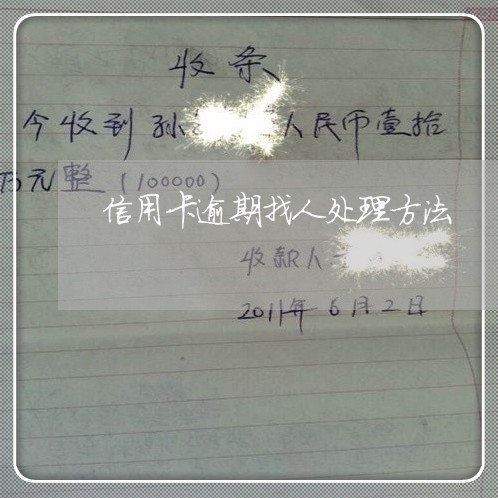 收条
今收到孙 人民币壹拾
万元整(100000)
信用卡逾期找人处理方法
收款人
2011年6月2日